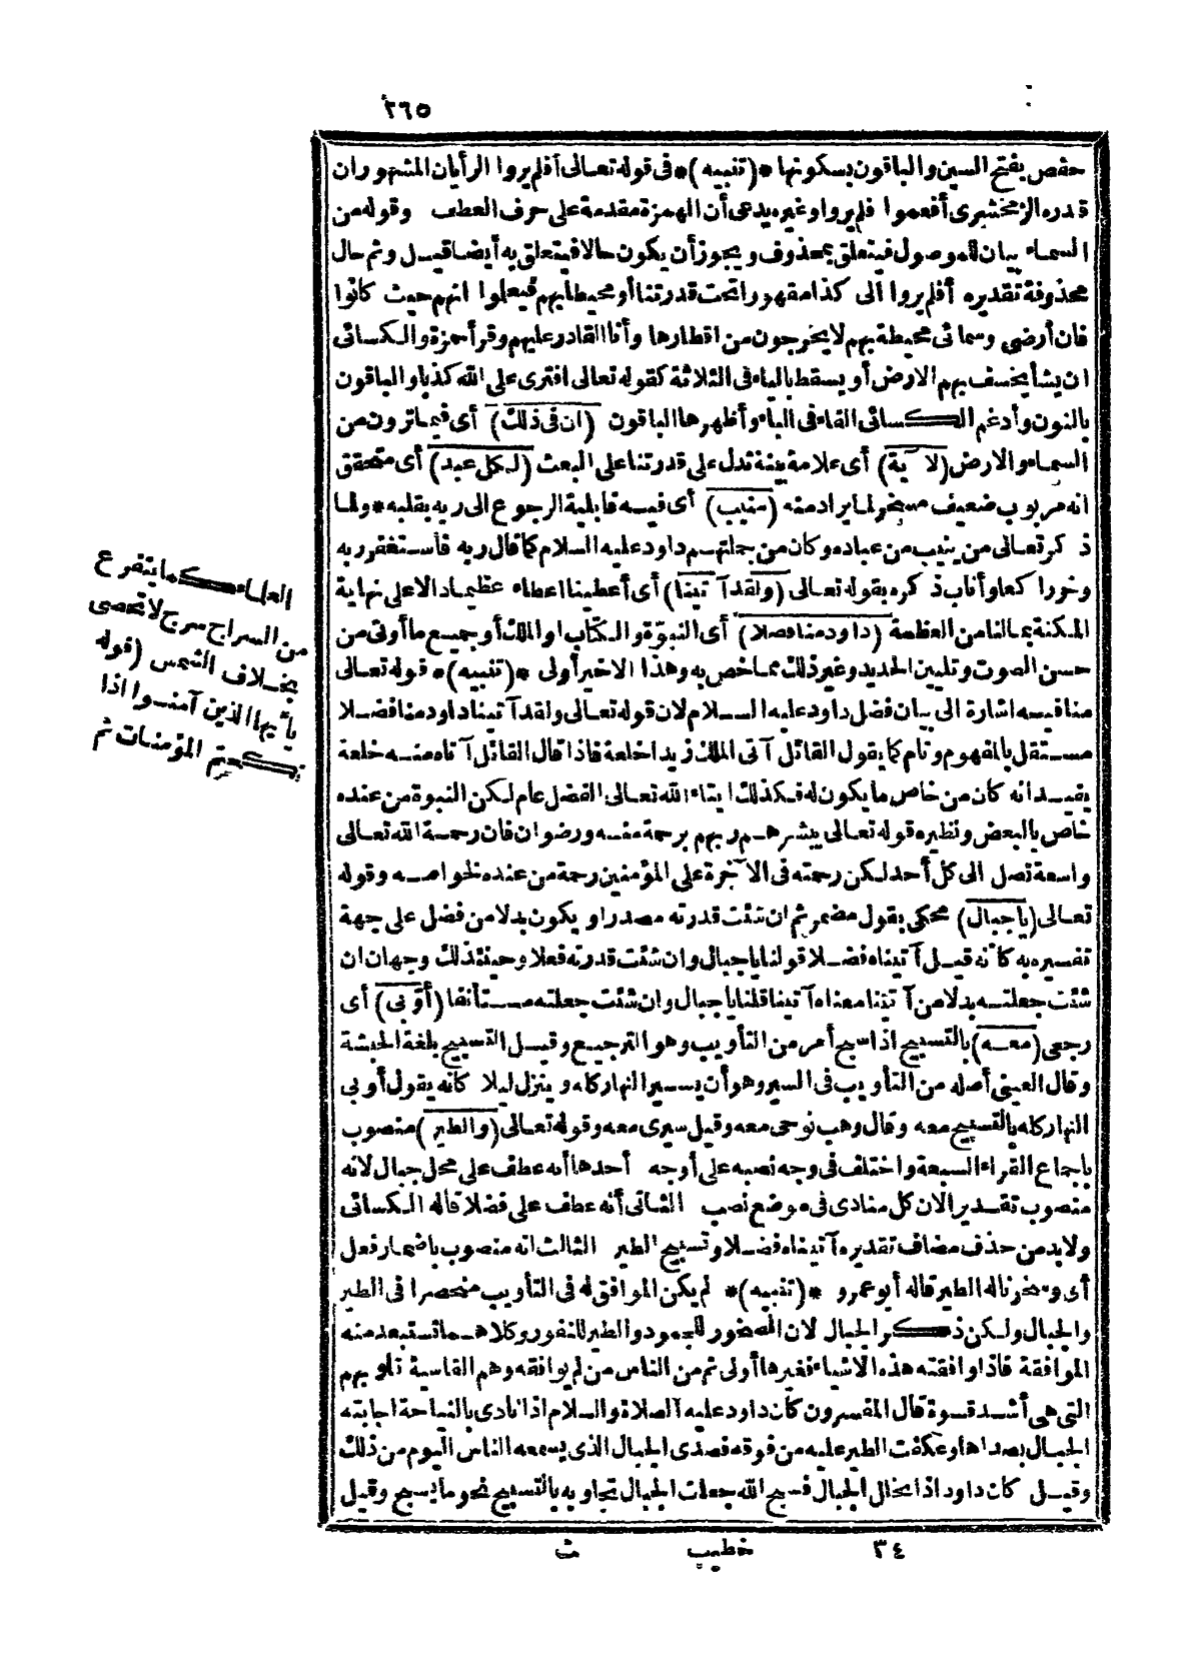 ٢٦٥
حفص بفتح السين والباقون بسكونها *(تنبيه)* فى قوله تعالى أفلم يروا الرأيان المشهوران
قدره الزمخشرى أفعموا فلم يروا وغيره يدعى أن الهمزة مقدمة على حرف العطف وقوله من
السماء بيان للموصول فيتعلق بمحذوف ويجوز أن يكون حالا فيتعلق به أيضا قيل وثم حال
محذوفة تقديره أفلم يروا الى كذا مقهورا تحت قدرتنا أو محيطا بهم فيعلموا انهم حيث كانوا
فان أرضى وسمائى محيطة بهم لا يخرجون من اقطارها وأنا القادر عليهم وقرأ حمزة والكسائى
ان يشأ يخسف بهم الارض أو يسقط بالياء فى الثلاثة كقوله تعالى افترى على الله كذبا والباقون
بالنون وأدغم الكسائى الفاء فى الباء وأظهرها الباقون (ان فى ذلك) أى فيما ترون من
السماء والارض (لآية) أى علامة بينة تدل على قدرتنا على البعث (لكل عبد) أى متحقق
انه مربوب ضعيف مسخر لما يراد منه (منيب) أى فيه قابلية الرجوع الى ربه بقلبه * ولما
ذكر تعالى من ينيب من عباده وكان من جملتهم داود عليه السلام كما قال ربه فاستغفر ربه
وخر راكعا وأناب ذكره بقوله تعالى (ولقد آتينا) أى أعطينا اعطاء عظيما دالا على نهاية
المكنة بما لنا من العظمة (داود منا فضلا) أى النبوّة والكتاب او الملك أو جميع ما أوتى من
حسن الصوت وتليين الحديد وغير ذلك مما خص به وهذا الاخير أولى *(تنبيه)* قوله تعالى
منا فيه اشارة الى بيان فضل داود عليه السلام لان قوله تعالى ولقد آتينا داود منا فضلا
مستقل بالمفهوم وتام كما يقول القائل آتى الملك زيدا خلعة فاذا قال القائل آتاه منه خلعة
يفيد انه كان من خاص ما يكون له فكذلك ايتاء الله تعالى الفضل عام لكن النبوة من عنده
خاص بالبعض ونظيره قوله تعالى يبشرهم ربهم برحمة منه ورضوان فان رحمة الله تعالى
واسعة تصل الى كل أحد لكن رحمته فى الآخرة على المؤمنين رحمة من عنده لخواصه وقوله
تعالى (يا جبال) محكى بقول مضمر ثم ان شئت قدرته مصدرا ويكون بدلا من فضل على جهة
تفسيره به كأنه قيل آتيناه فضلا قولنا يا جبال وان شئت قدرته فعلا وحينئذ لك وجهان ان
شئت جعلته بدلا من آتينا معناه آتينا قلنا يا جبال وان شئت جعلته مستأنفا (أوّبى) أى
رجعى (معه) بالتسبيح اذا سبح أمر من التأويب وهو الترجيع وقيل التسبيح بلغة الحبشة
وقال العينى أصله من التأويب فى السير وهو أن يسير النهار كله وينزل ليلا كأنه يقول أوبى
النهار كله بالتسبيح معه وقال وهب نوحى معه وقيل سيرى معه وقوله تعالى (والطير) منصوب
باجماع القراء السبعة واختلف فى وجه نصبه على أوجه أحدها أنه عطف على محل جبال لانه
منصوب تقديرا لان كل منادى فى موضع نصب الثانى أنه عطف على فضلا قاله الكسائى
ولا بد من حذف مضاف تقديره آتيناه فضلا وتسبيح الطير الثالث انه منصوب باضمار فعل
أى وسخرنا له الطير قاله أبو عمرو *(تنبيه)* لم يكن الموافق له فى التأويب منحصرا فى الطير
والجبال ولكن ذكر الجبال لان الصخور للجمود والطير للنفور وكلاهما تستبعد منه
الموافقة فاذا وافقته هذه الاشياء فغيرها أولى ثم من الناس من لم يوافقه وهم القاسية قلوبهم
التى هى أشد قسوة قال المفسرون كان داود عليه الصلاة والسلام اذا نادى بالنياحة اجابته
الجبال بصداها وعكفت الطير عليه من فوقه فصدى الجبال الذى يسمعه الناس اليوم من ذلك
وقيل كان داود اذا تخلل الجبال فسبح الله جعلت الجبال تجاوبه بالتسبيح نحو ما يسبح وقيل
العلماء كما يتفرع
من السراج سرج لا تحصى
بخلاف الشمس (قوله
يا أيها الذين آمنوا اذا
نكحتم المؤمنات ثم
٣٤ خطيب ث